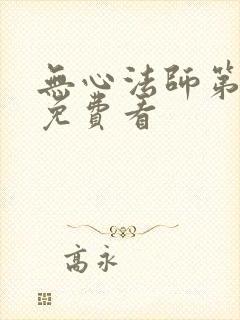 無心法師第
免費看
高永